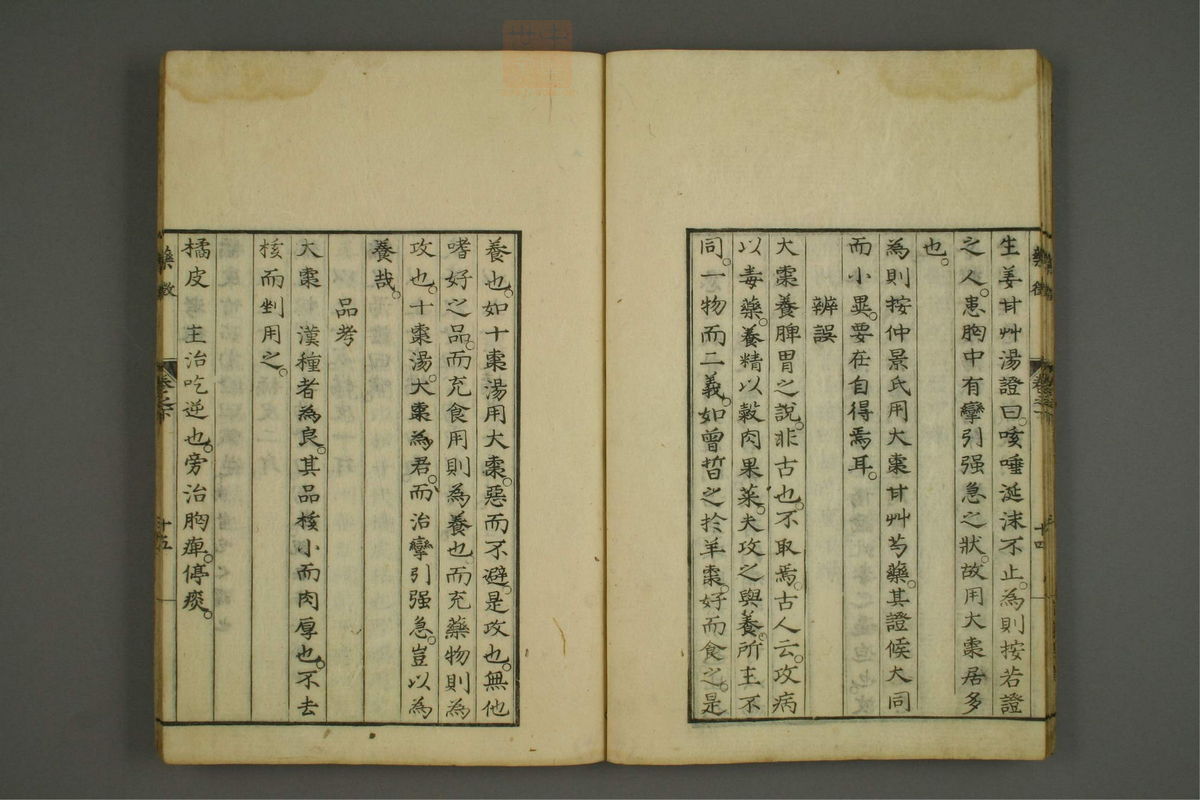 生姜甘艸湯證曰。咳唾涎沫不止。為則按若證
之人。患胸中有攣引强急之狀。故用大棗居多
也。
為則按仲景氏用大棗甘艸芍藥。其證候大同
而小異。要在自得焉耳。
辨誤
大棗養脾胃之說。非古也。不取焉。古人云。攻病
以毒藥。養精以穀肉果菜。夫攻之與養。所主不
同。一物而二義。如曾晳之於羊棗。好而食之。是
養也。如十棗湯用大棗。惡而不避。是攻也。無他
嗜好之品。而充食用則為養也。而充藥物則為
攻也。十棗湯。大棗為君。而治攣引强急。豈以為
養哉。
品考
大棗 漢種者為良。其品核小而肉厚也。不去
核而剉用之。
橘皮 主治吃逆也。旁治胸痺。停痰。
藥徵
十五
十四